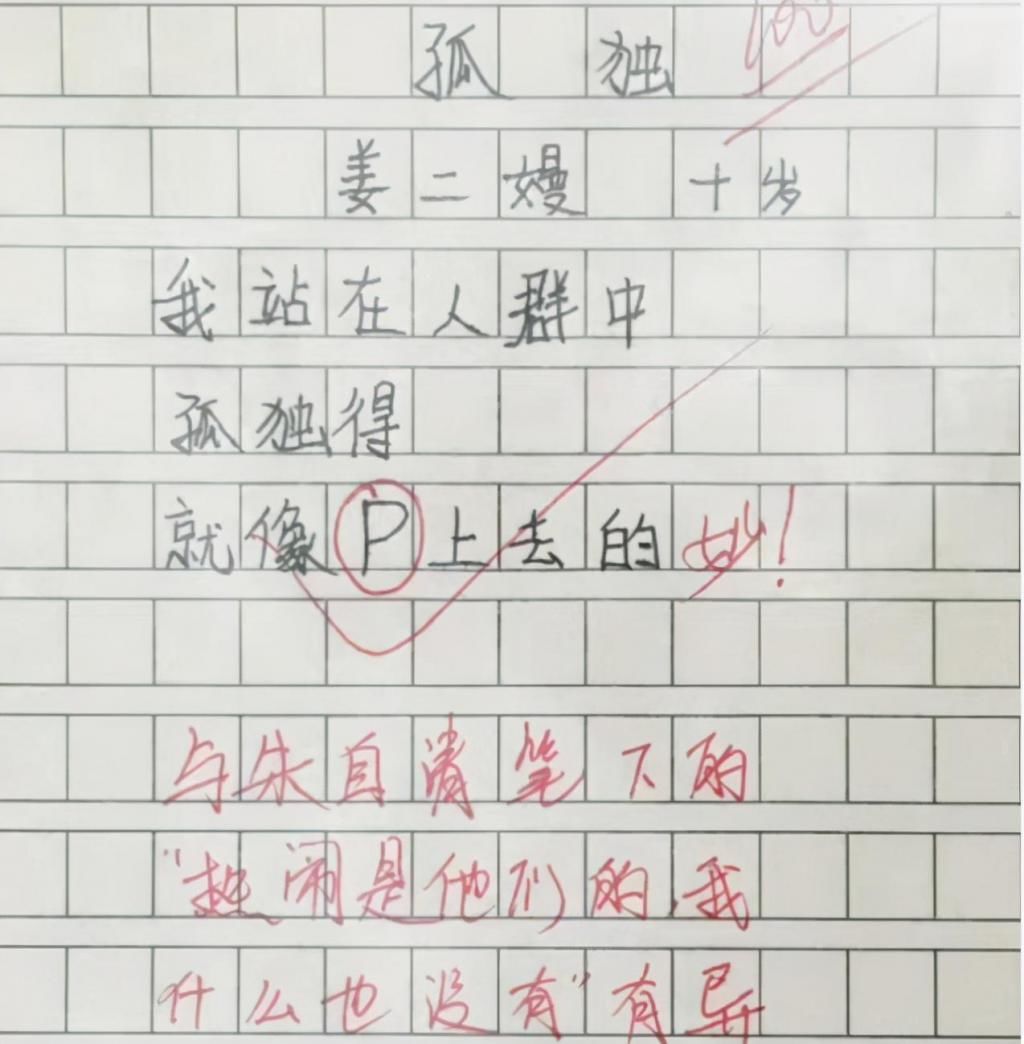 孤独 100
姜二嫚 十岁
我站在人群中
孤独得
就像P上去的 妙!
与朱自清笔下的
“热闹是他们的,我
什么也没有”有异